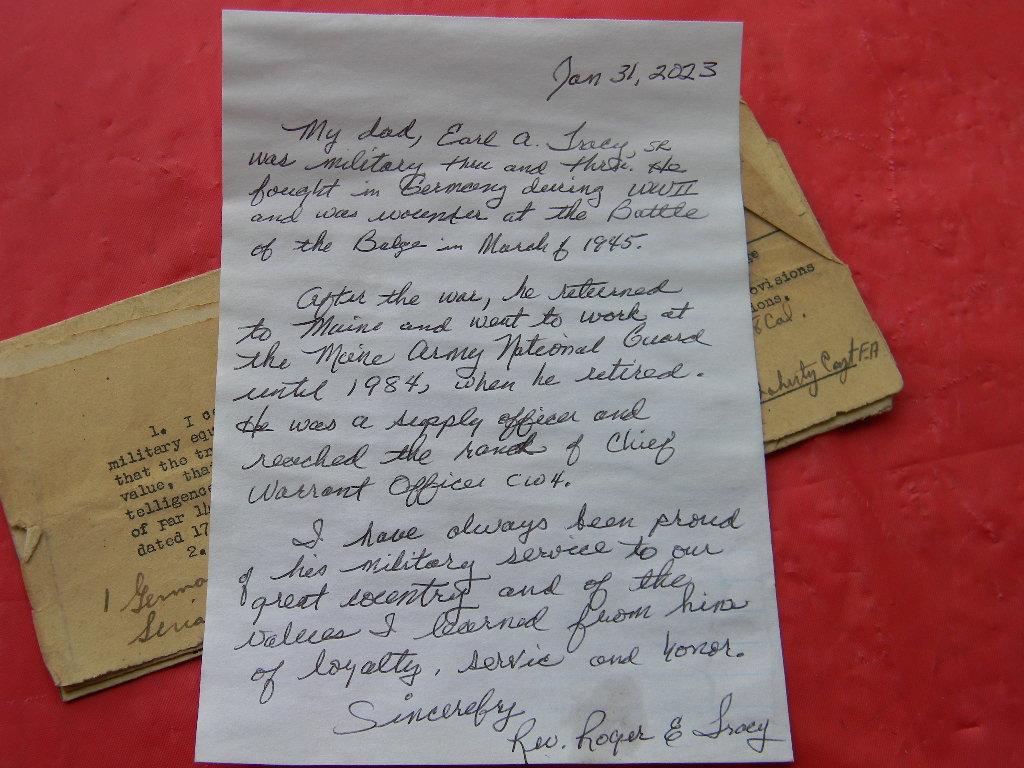 Jan 31, 2023
My dad, Earl A. Tracy, SR
was military thru and thru. He
fought in Germany during WWII
and was wounder at the Battle
of the Bulge in March of 1945.
After the war, he returned
to Maine and went to work at
the Maine Army National Guard
until 1984, when he retired.
He was a supply officer and
reached the rank of Chief
Warrant Officer CW4.
I have always been proud
of his military service to our
great country and of the
values I learned from him
of loyalty, servic and honor.
Sincerely
Rev. Roger E Tracy
1. I c
military equ
that the tr
value, tha
telligenc
of Par 1
dated 17
2.
1 Germa
Seria
e
ovisions
ions.
8 Cal.
Capt FA